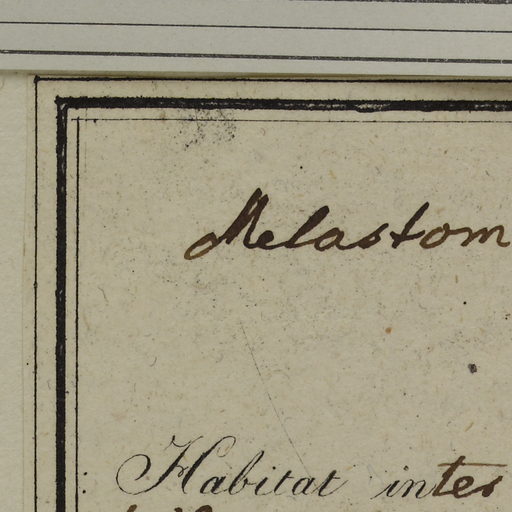 Melastom
: Habitat inter